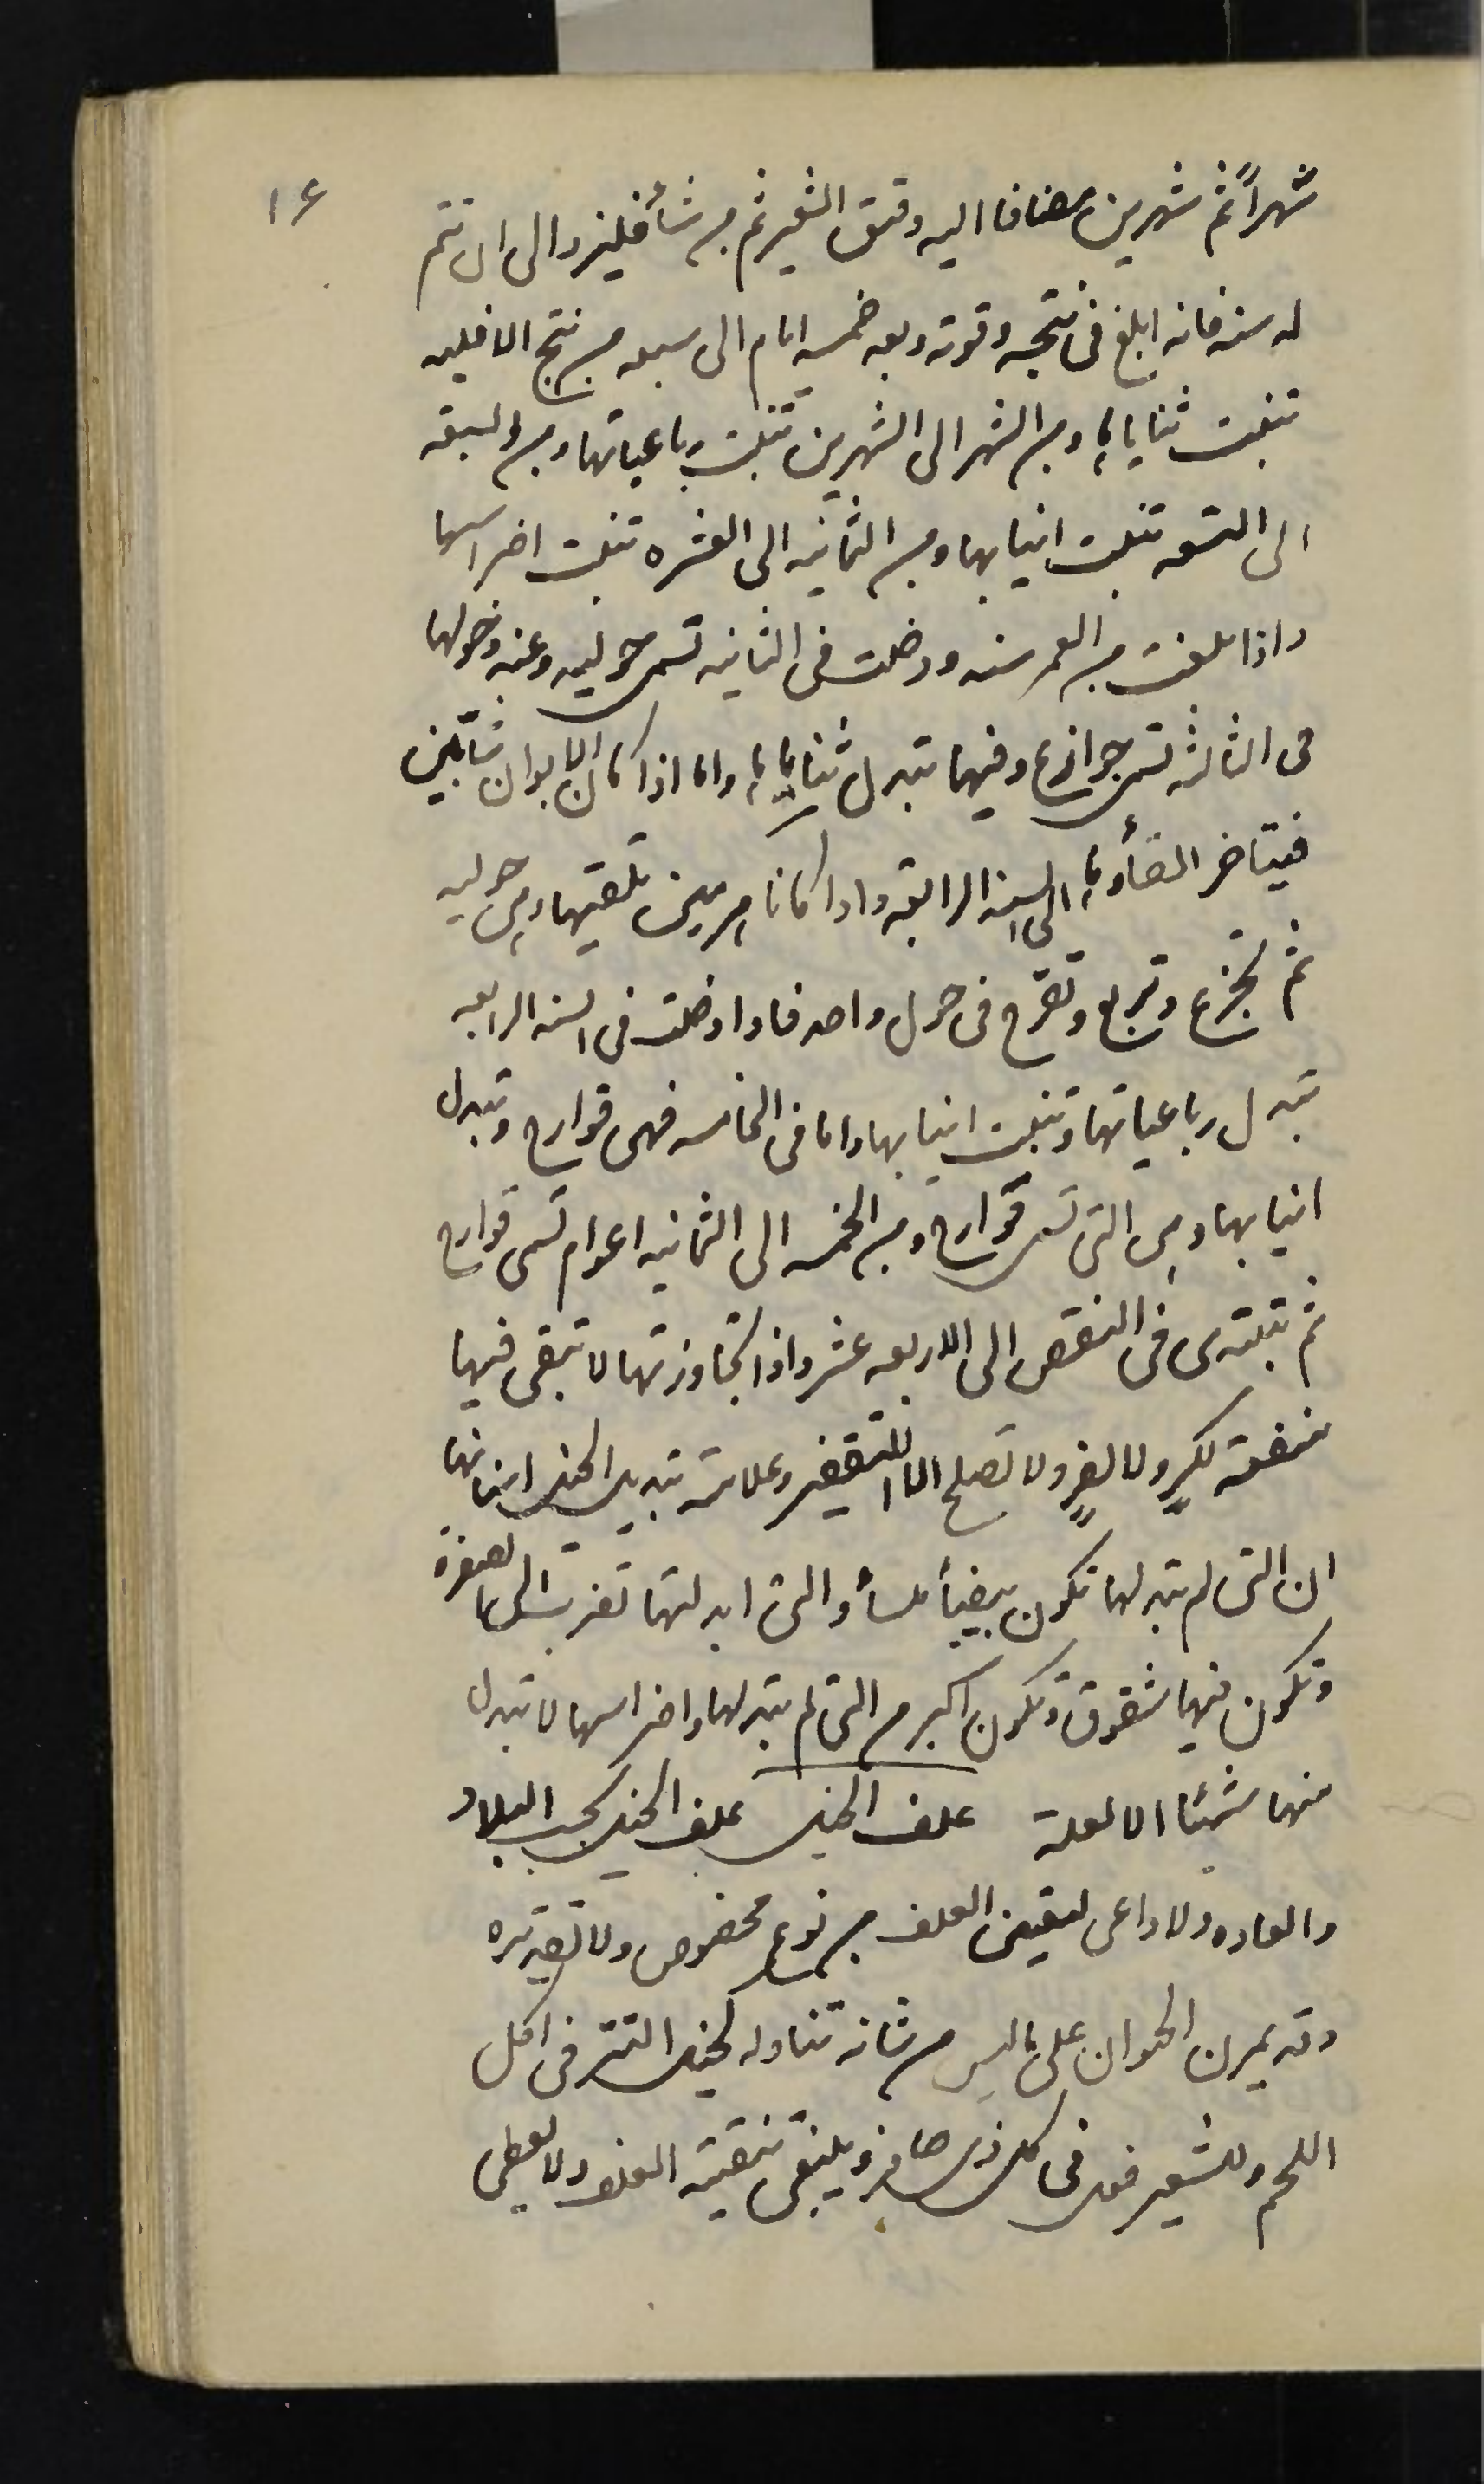 ١٤
شهراً ثم شهرين مضافا اليه دقيق الشعير ثم من شأ فليزد الى ان تتم
له سنه فانه ابلغ فى نتجه وقوته وبعد خمسه ايام الى سبعه من نتج الافليه
تنبت ثناياها ومن الشهر الى الشهرين تنبت رباعياتها ومن السبعه
الى التسعه تنبت انيابها ومن الثمانيه الى العشره تنبت اضراسها
واذا بلغت من العمر سنه ودخلت فى الثانيه تسمى حوليه وعند دخولها
فى الثالثه تسمى جوازع وفيها تبدل ثناياها واما اذا كان الابوان شابين
فيتاخر القأوها الى السنه الرابعه واذا كانا هرمين تلقيها وهى حوليه
ثم تجزع وتربع وتقرح فى حول واحد فاذا دخلت فى السنه الرابعه
تبدل رباعياتها وتنبت انيابها واما فى الخامسه فهى قوارح وتبدل
انيابها وهى التى تسمى قوارح ومن الخمسه الى الثمانيه اعوام تسمى قوارح
ثم تبتدى فى النقص الى الاربعه عشر واذا تجاوزتها لا تبقى فيها
منفعة لكرٍ ولا لفرٍ ولا تصلح الا للتقفيز وعلامة تبديل الخيل اسنانها
ان التى لم تبدلها تكون بيضأ ملسأ والتى ابدلتها تضرب الى الصفرة
وتكون فيها شقوق وتكون اكبر من التى لم تبدلها واضراسها لا تبدل
منها شيئا الا لعلة علف الخيل علف الخيل بحسب البلاد
والعاده ولا داعى لتعيين العلف من نوع مخصوص ولا تقديره
وقد يمرن الحيوان على ما ليس من شانه تناوله كخيل التتر فى اكل
اللحم وللشعير فعل فى كل ذى حافر وينبغى تنقية العلف ولا يعطى